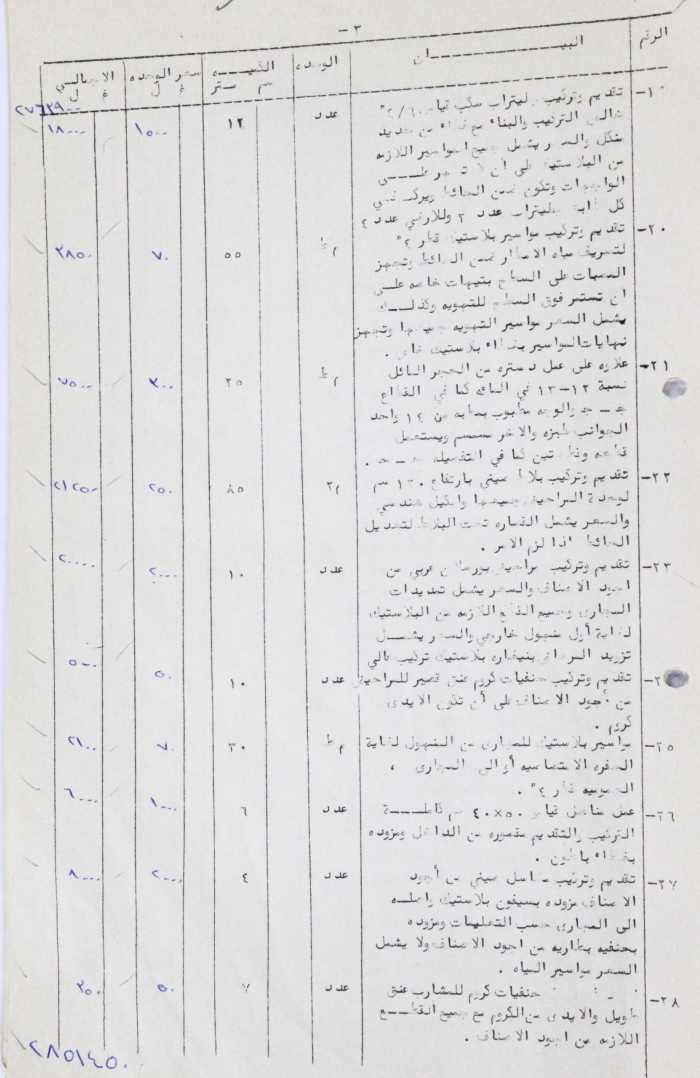 -٣-
الرقم البيـــــــــان الوحده الكميــــه سعر الوحده الاجمالـــي
م ستر غ ل غ ل
٢٧٦٣٩٠٠
-١٩ تقديم وترتيب مزليتراب سكب قياس ٢/٦"
عدد ١٢ ١٥٠٠ ١٨٠٠٠
التركيب والبناء مع غطاء من حديد
مشكل والسعر يشمل جميع المواسير اللازمه
من البلاستيك على أن لا تظهر علـــى
الواجهات وتكون ضمن الحائط ويركب في
كل مزليتراب عدد ٢ وللارضي عدد ٢
-٢٠ تقديم وتركيب مواسير بلاستيك قطر ٤"
م ط ٥٥ ٧٠ ٣٨٥٠
لتصريف مياه الامطار ضمن الحائط وتجهز
المصبات على السطح بتيهات خاصه علـــى
ان تستمر فوق السطح للتهويه وكذلـــك
يشمل السعر مواسير التهويه جميعها وتجهز
نهايات المواسير بغطاء بلاستيك خاص .
-٢١ علاوه على عمل دستره من الحجر المائل
م ط ٢٥ ٣٠٠ ٧٥٠٠
نسبة ١٢-١٣ في المائه كما في القطاع
جـ - جـ والوجه مطبوب من ١٢ واحد
الجوانب طبزه والاخر مسمسم ويستعمل
قطعه وقطعتين كما في التفصيله حـ - حـ .
-٢٢ تقديم وتركيب بلاط صيني بارتفاع ١٣٠ سم
م٢ ٨٥ ٢٥٠ ٢١٢٥٠
لوحدة المراحيض جميعها والشكل هندسي
والسعر يشمل القصاره تحت البلاط لتعديل
الحائط اذا لزم الامر .
-٢٣ تقديم وتركيب مراحيض بورسلان عربي من
عدد ١٠ ٢٠٠٠ ٢٠٠٠٠
اجود الاصناف والسعر يشمل تمديدات
المجارى وجميع القطع اللازمه من البلاستيك
لغاية أول منهول خارجي والسعر يشمـــل
تزويد المرحاض بنيغاره بلاستيك تركيب عالي
-٢٤ تقديم وتركيب حنفيات كروم عنق قصير للمراحيض
عدد ١٠ ٥٠ ٥٠٠
من أجود الاصناف على أن تكون الايدى
كروم .
-٢٥ مواسير بلاستيك للمجارى من المنهول لغاية
م ط ٣٠ ٧٠ ٢١٠٠
الحفره الامتصاصيه أو الى المجارى ،
العموميه قطر ٤" .
-٢٦ عمل مناهل قياس ٥٠×٤٠ سم
عدد ٦ ١٠٠٠ ٦٠٠٠
التركيب والتقديم مقصوره من الداخل ومزوده
بغطاء باطون .
-٢٧ تقديم وتركيب مغاسل صيني من أجود
عدد ٤ ٢٠٠٠ ٨٠٠٠
الاصناف مزوده بسيفون بلاستيك واصلـــه
الى المجارى حسب التعليمات ومزوده
بحنفيه بطاريه من اجود الاصناف ولا يشمل
السعر مواسير المياه .
-٢٨ حنفيات كروم للمشارب عنق
عدد ٧ ٥٠ ٣٥٠
طويل والايدى من الكروم مع جميع القطـــع
اللازمه من اجود الاصناف .
٢٨٥١٤٥٠